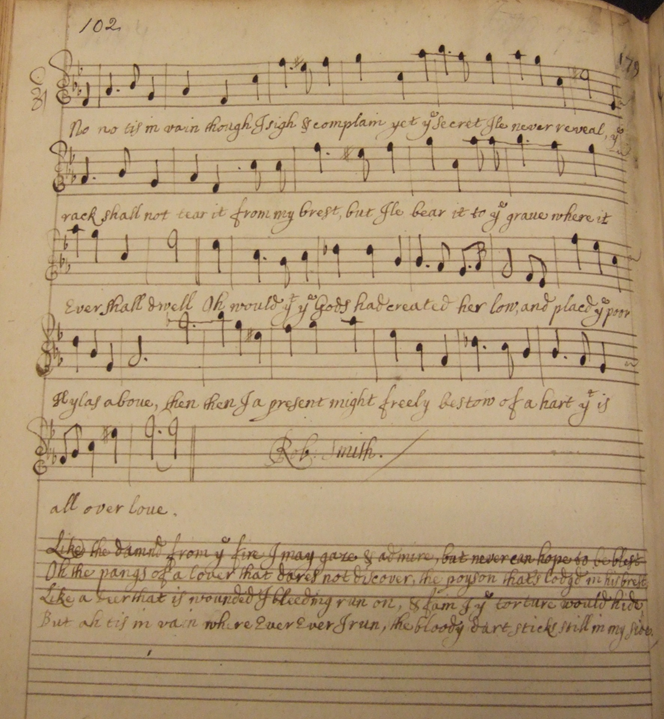 102
No no tis in vain though I sigh & complain yet yͤ secret Ile never reveal, yͤ
rack shall not tear it from my brest, but Ile bear it to yͤ grave where it
Ever shall dwell Oh would yͭ yͤ Gods had created her low, and plac'd yͤ poor
Hylas above, then then I a present might freely bestow of a hart yͭ is
Rob. Smith.
all over love.
Like the damnd from yͤ fire I may gaze & admire, but never can hope to be blest
Oh the pangs of a lover that dares not discover, the poyson thats lodgd in his brest
Like a deer that is wounded I bleeding run on, & fain I yͤ torture would hide
But ah tis in vain where Ever Ever I run, the bloody dart sticks still in my side